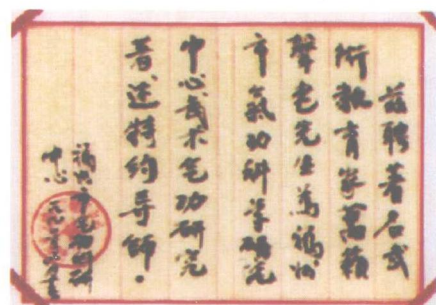 兹聘著名武
術教育家萬籟
聲老先生為福州
市氣功科学研究
中心武术气功研究
著述特約导師。
福州市气功科研
中心